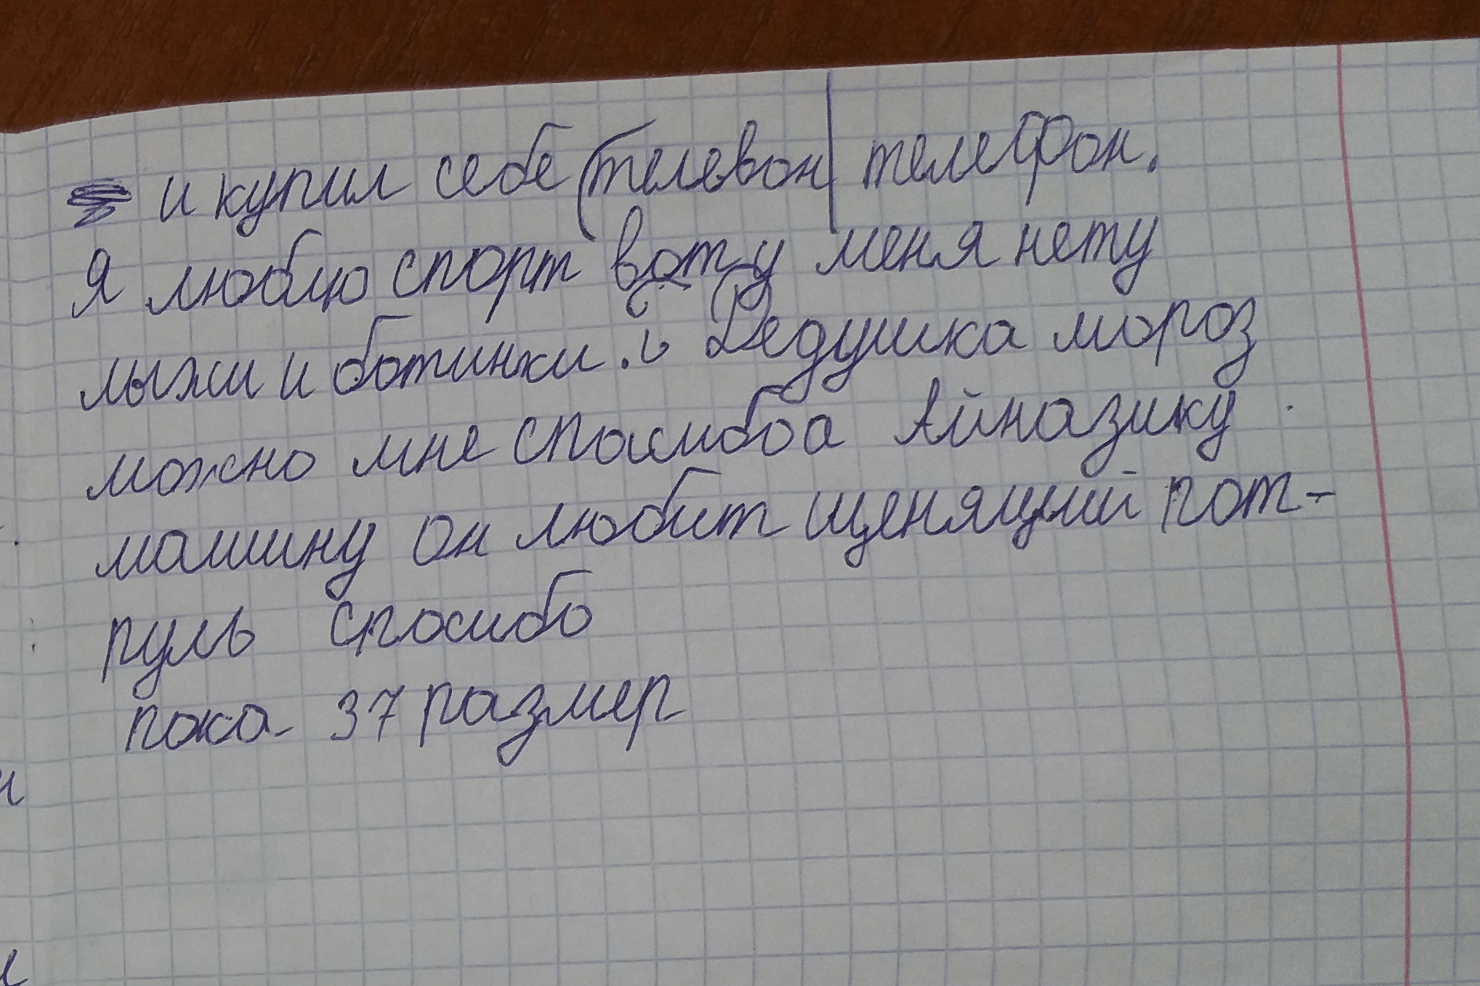 и купил себе (телевон| телефон.
Я люблю спорт вот у меня нету
лыжи и ботинки. и Дедушка мороз
можно мне спасибоа Айназику
машину он любит щенящий пот-
руль спосибо
пока 37 размер